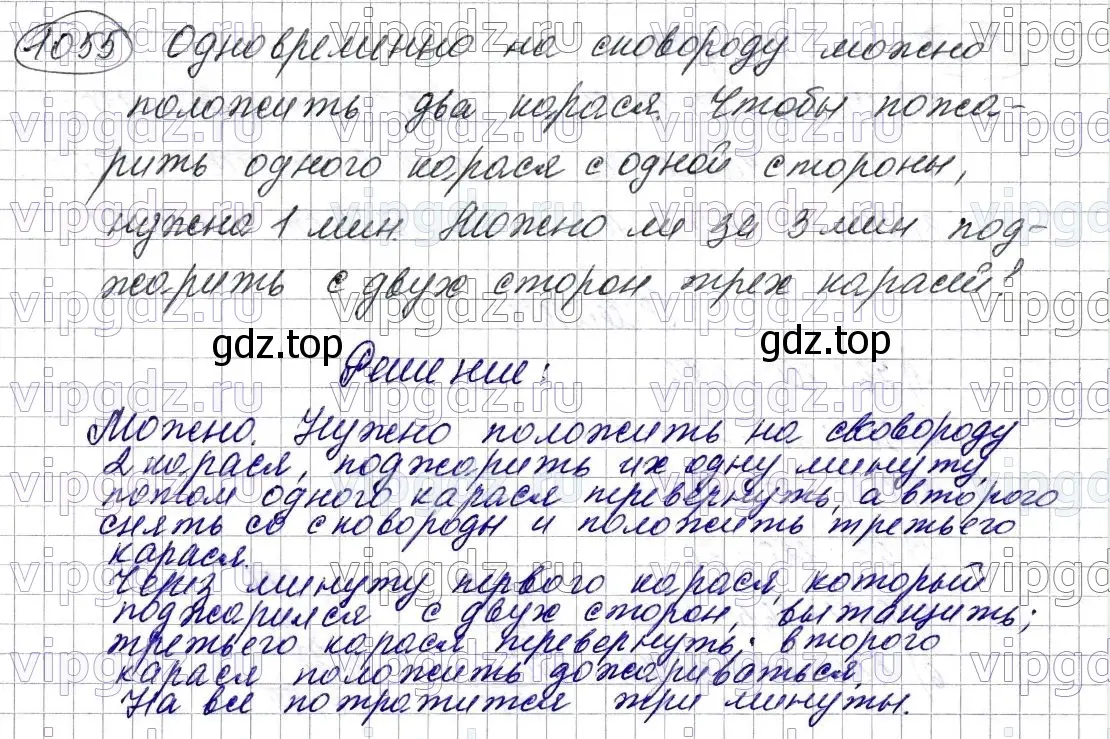 1055 Одновременно на сковороду можно
положить два карася. Чтобы пожа-
рить одного карася с одной стороны,
нужна 1 мин. Можно ли за 3 мин под-
жарить с двух сторон трех карасей?
gdz.top gdz.top
Решение:
Можно. Нужно положить на сковороду
2 карася, поджарить их одну минуту,
потом одного карася перевернуть, а второго
снять со сковороды и положить третьего
карася.
Через минуту первого карася, который
поджарился с двух сторон, вытащить;
третьего карася перевернуть; второго
карася положить дожариваться.
На все потратится три минуты.
vipgdz.ru